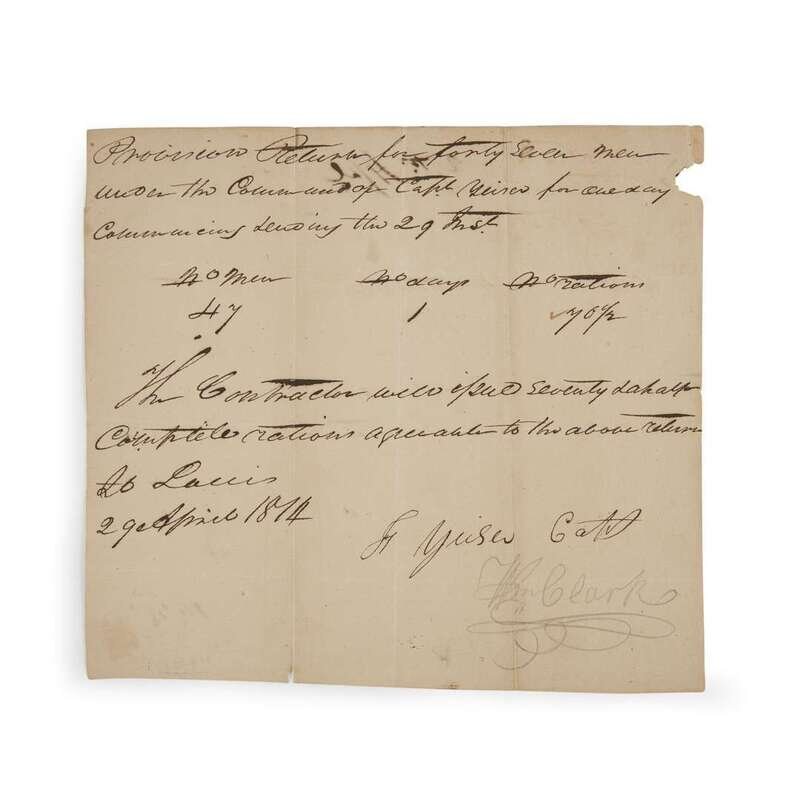 Provision Return for forty Seven Men
under the Command of Capt. Yeiser for one day
Commencing & ending the 29 Inst.
No Men No days No rations
47 1 70 1/2
The Contractor will issue Seventy & a half
Complete rations agreeable to the above return
St Louis
29 April 1814
F Yeiser Capt
Wm Clark